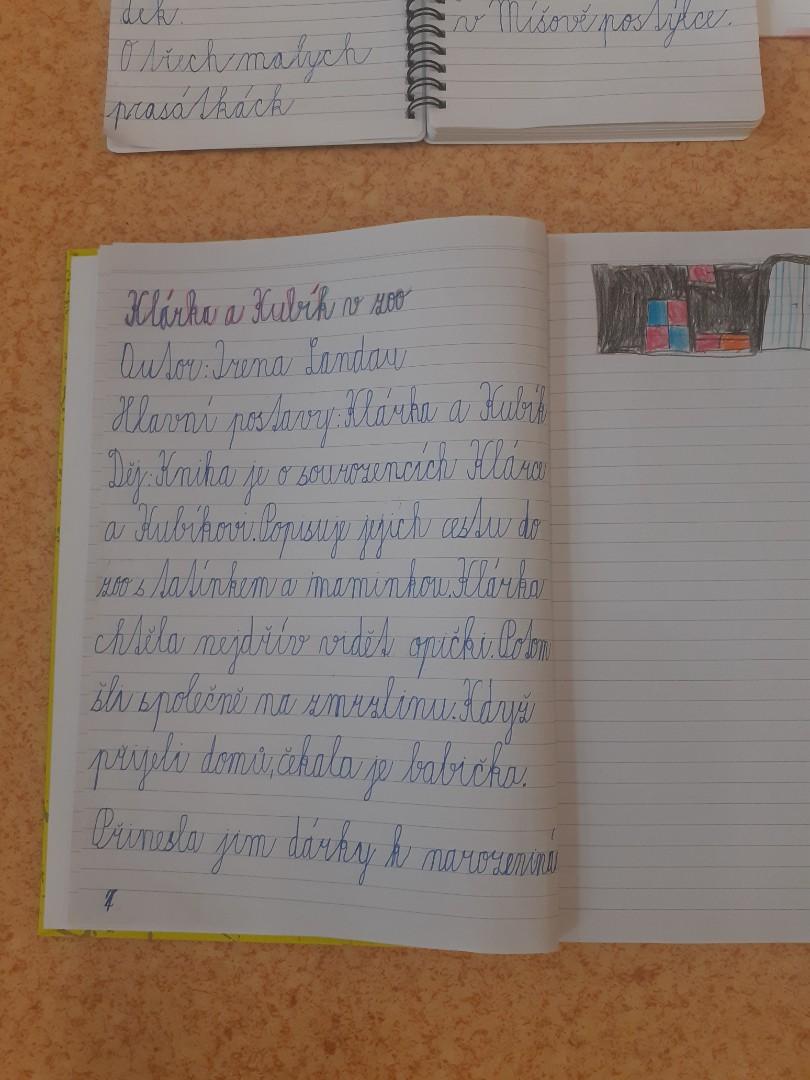 dek.
O třech malych
prasátkách
v Míšově postýlce.
Klárka a Kubík v zoo
Autor: Irena Landau
Hlavní postavy: Klárka a Kubík
Děj: Kniha je o sourozencích Klárce
a Kubíkovi. Popisuje jejich cestu do
zoo s tatínkem a maminkou. Klárka
chtěla nejdřív vidět opički. Potom
šli společně na zmrzlinu. Když
přijeli domů, čekala je babička.
Přinesla jim dárky k narozeniná